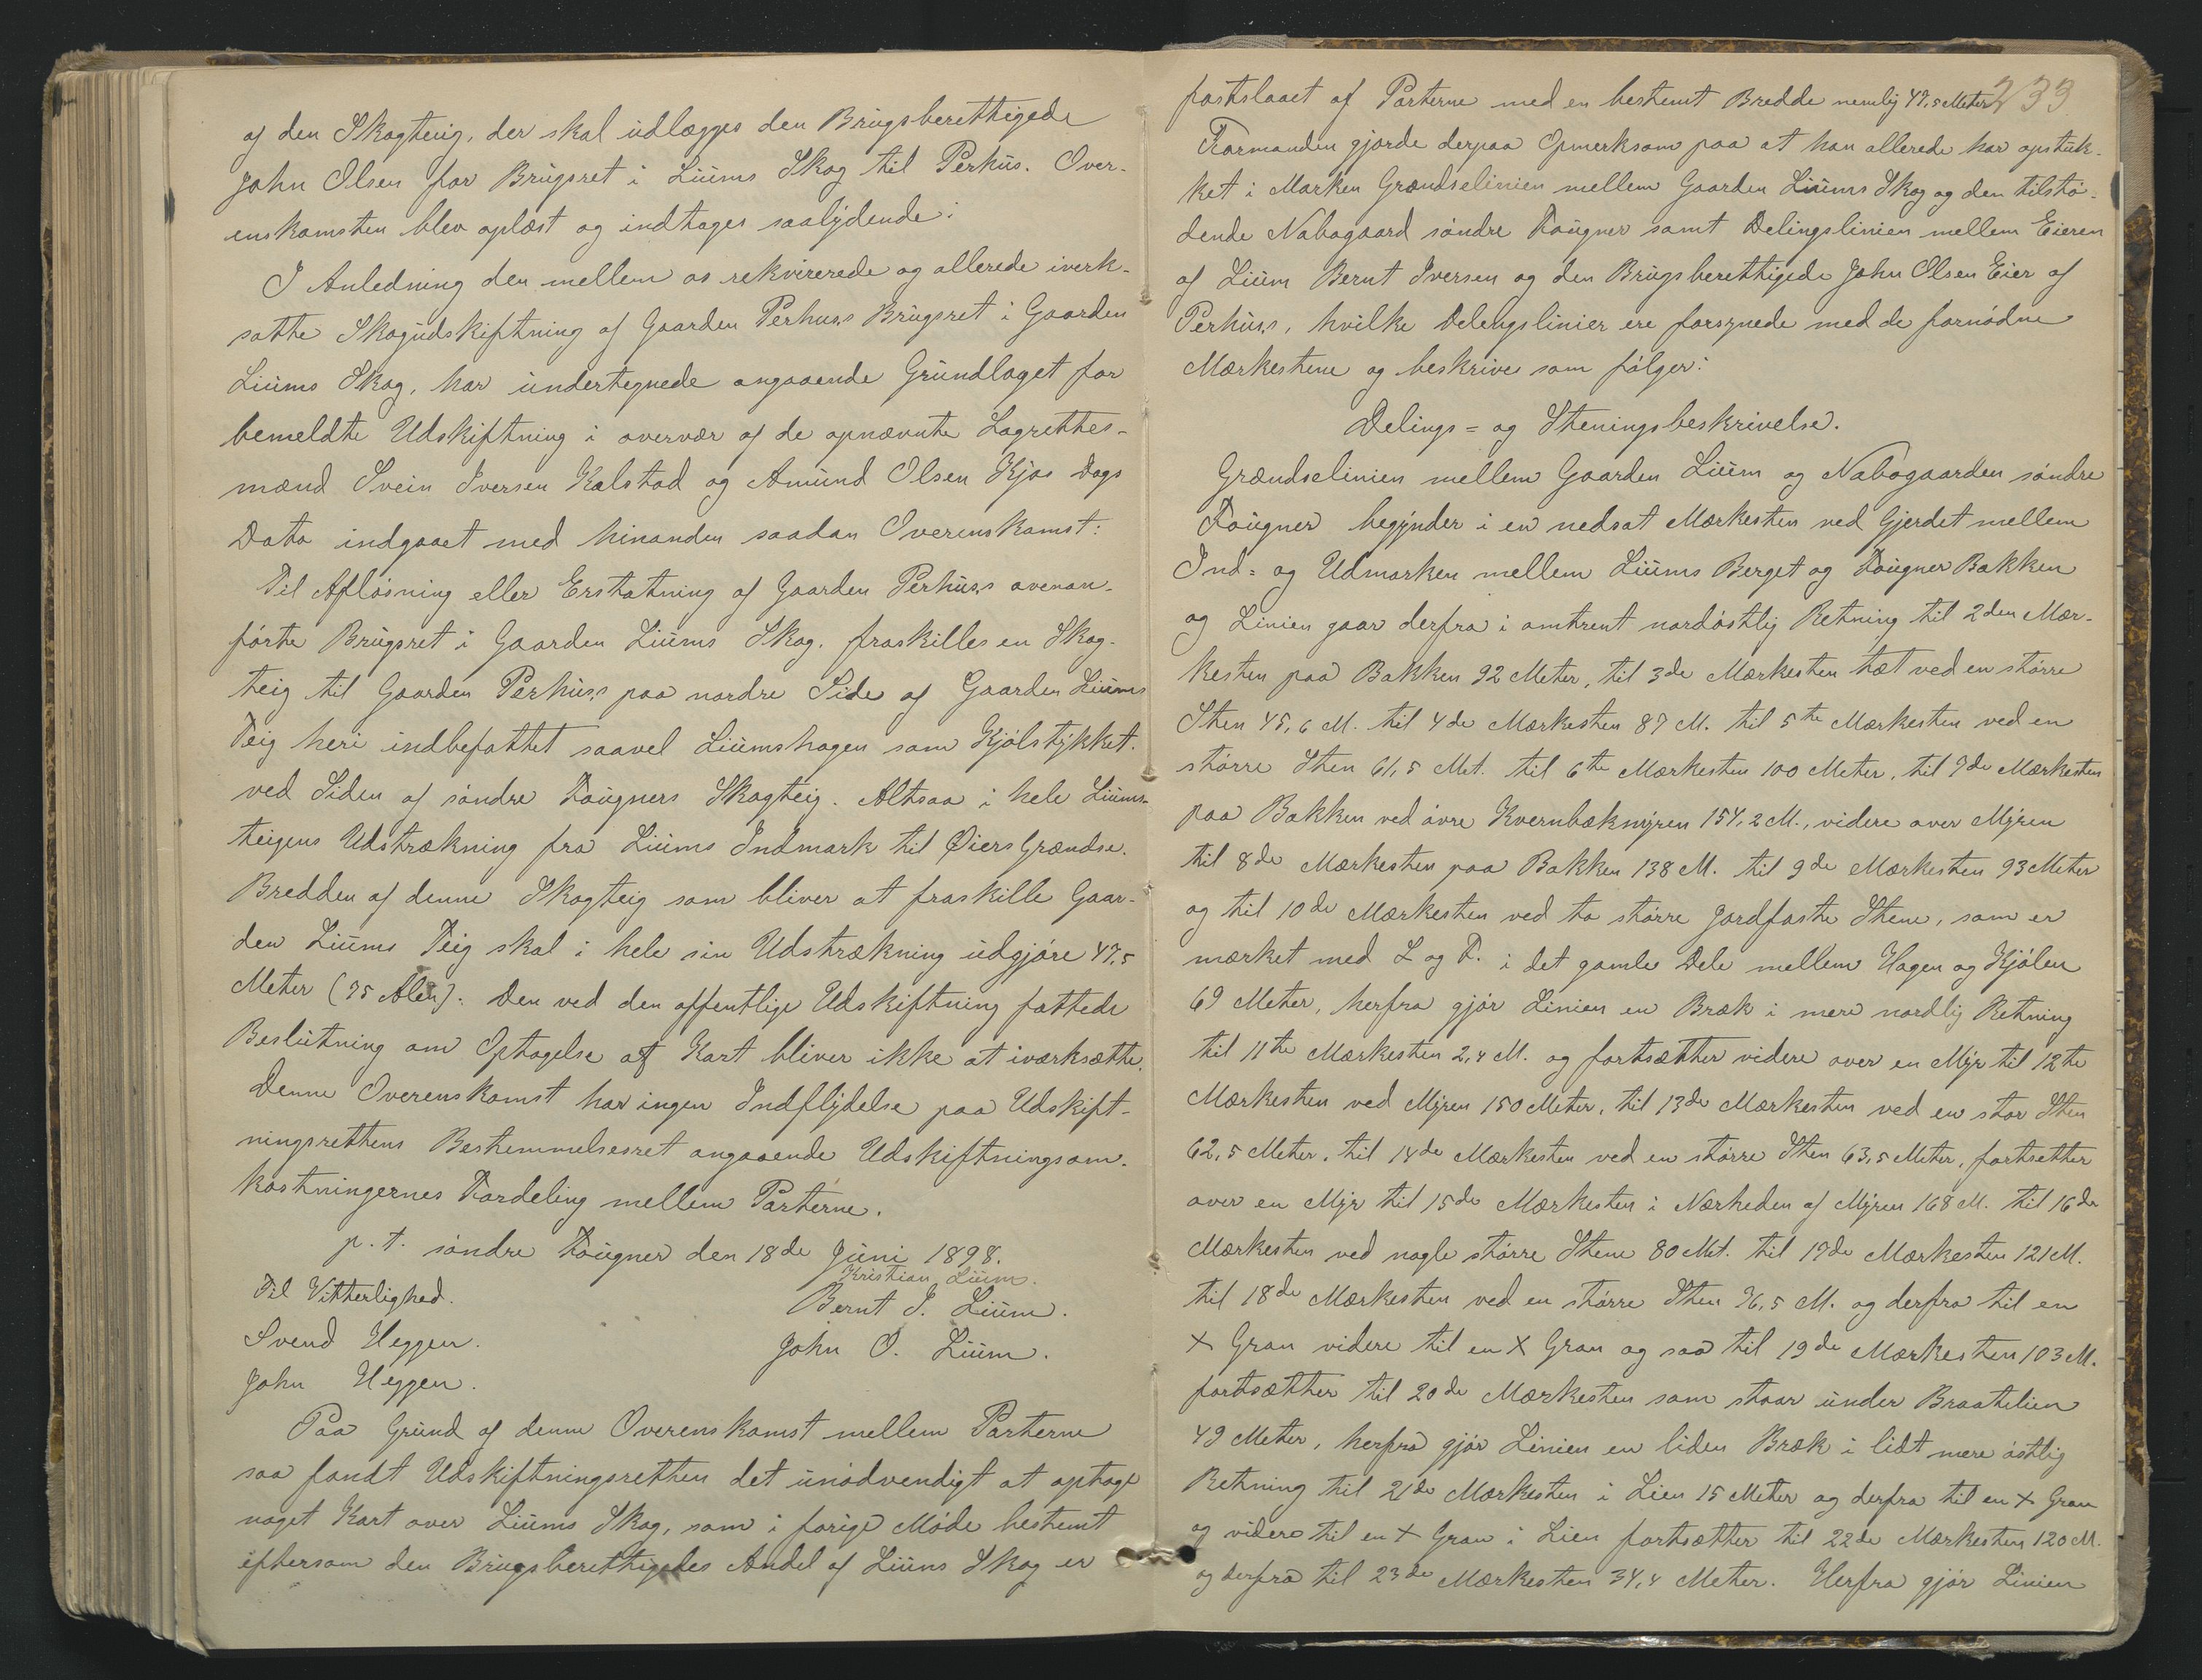 af den Skogteig, der skal udlægges den Brugsberettigede
John Olsen for Brugsret i Liums Skog til Perhus. Over-
enskomsten blev oplæst og indtages saalydende:
I Anledning den mellem os rekvirerede og allerede iverk-
satte Skogudskiftning af Gaarden Perhus's Brugsret i Gaarden
Liums Skog, har undertegnede angaaende Grundlaget for
bemeldte Udskiftning i overvær af de opnævnte Lagrettes-
mænd Svein Iversen Kalstad og Amund Olsen Kjos Dags
Dato indgaaet med hinanden saadan Overenskomst:
Til Afløsning eller Erstatning af Gaarden Perhus's ovenan-
førte Brugsret i Gaarden Liums Skog, fraskilles en Skog-
teig til Gaarden Perhus's paa nordre Side af Gaarden Liums
Teig heri indbefattet saavel Liumshagen som Kjølstykket
ved Siden af søndre Fougners Skogteig. Altsaa i hele Liums-
teigens Udstrækning fra Liums Indmark til Øiers Grændse.
Bredden af denne Skogteig som bliver at fraskille Gaar-
den Liums Teig skal i hele sin Udstrækning udgjøre 47,5
Meter (75 Alen). Den ved den offentlige Udskiftning fattede
Beslutning om Optagelse af Kart bliver ikke at iværksætte.
Denne Overenskomst har ingen Indflydelse paa Udskift-
ningsrettens Bestemmelsesret angaaende Udskiftningsom-
kostningernes Fordeling mellem Parterne.
p. t. søndre Fougner den 18de Juni 1898.
Kristian Lium.
Til Vitterlighed. Bernt I. Lium.
Svend Heggen. John O. Lium.
John Heggen.
Paa Grund af denne Overenskomst mellem Parterne
saa fandt Udskiftningsretten det unødvendigt at optage
noget Kart over Liums Skog, som i forige Møde bestemt
eftersom den Brugsberettigedes Andel af Liums Skog er
233
fastslaaet af Parterne med en bestemt Bredde nemlig 47,5 Meter
Formanden gjorde derpaa Opmerksom paa at han allerede har opstuk-
ket i Marken Grændselinien mellem Gaarden Liums Skog og den tilstø-
dende Nabogaard søndre Fougner samt Delingslinien mellem Eieren
af Lium Bernt Iversen og den Brugsberettigede John Olsen Eier af
Perhus's, hvilke Delingslinier ere forsynede med de fornødne
Mærkestene og beskrives som følger:
Delings= og Steningsbeskrivelse.
Grændselinien mellem Gaarden Lium og Nabogaarden søndre
Fougner begynder i en nedsat Mærkesten ved Gjerdet mellem
Ind= og Udmarken mellem Liums Berget og Fougner Bakken
og Linien gaar derfra i omtrent nordøstlig Retning til 2den Mær-
kesten paa Bakken 92 Meter, til 3de Mærkesten tæt ved en større
Sten 45,6 M. til 4de Mærkesten 87 M. til 5te Mærkesten ved en
større Sten 61,5 Met. til 6te Mærkesten 100 Meter, til 7de Mærkesten
paa Bakken ved øvre Kvernbækmyren 154,2 M., videre over Myren
til 8de Mærkesten paa Bakken 138 M. til 9de Mærkesten 93 Meter
og til 10de Mærkesten ved to større jordfaste Stene, som er
mærket med L og F. i det gamle Dele mellem Hagen og Kjølen
69 Meter, herfra gjør Linien en Bræk i mere nordlig Retning
til 11te Mærkesten 2,4 M. og fortsætter videre over en Myr til 12te
Mærkesten ved Myren 150 Meter, til 13de Mærkesten ved en stor Sten
62,5 Meter, til 14de Mærkesten ved en større Sten 63,5 Meter, fortsetter
over en Myr til 15de Mærkesten i Nærheden af Myren 168 M. til 16de
Mærkesten ved nogle større Stene 80 Met. til 17de Mærkesten 121 M.
til 18de Mærkesten ved en større Sten 76,5 M. og derfra til en
X Gran videre til en X Gran og saa til 19de Mærkesten 103 M.
fortsætter til 20de Mærkesten som staar under Braatelien
49 Meter, herfra gjør Linien en liden Bræk i lidt mere østlig
Retning til 21de Mærkesten i Lien 15 Meter og derfra til en X Gran
og videre til en X Gran i Lien fortsætter til 22de Mærkesten 120 M.
og derfra til 23de Mærkesten 34,4 Meter. Herfra gjør Linien